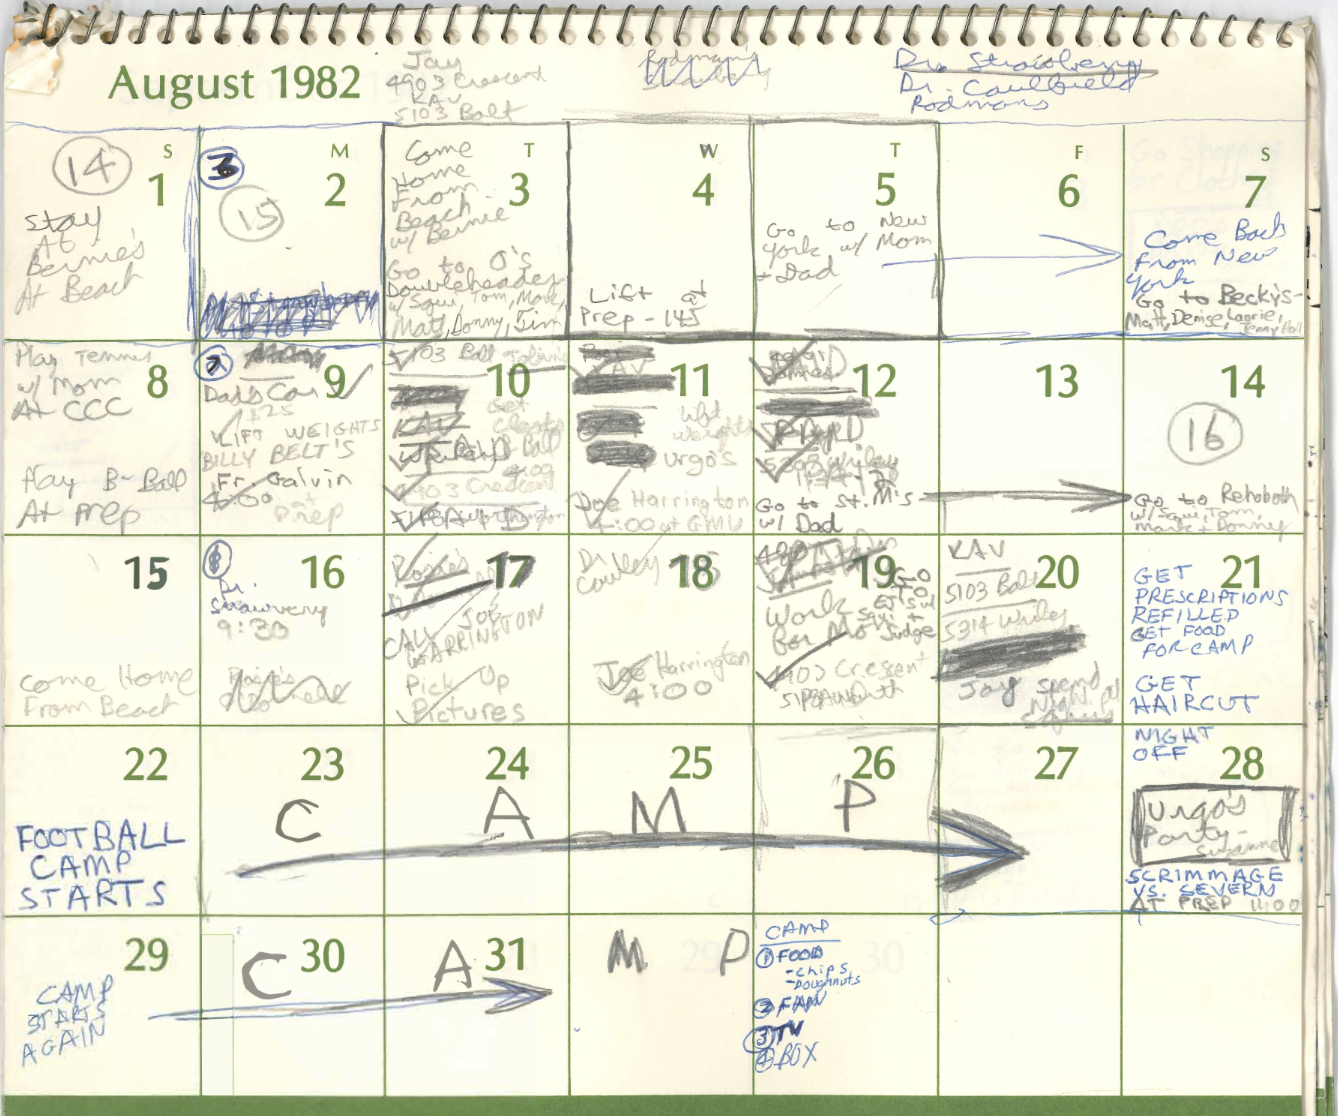 August 1982
Jay
4903 Crescent
KAV
5103 Balt
Rodman's
Dr. Strawberry
Dr. Caulfield
Rodmans
S
M
T
W
T
F
S
14
1
Stay
At
Bernie's
At Beach
2
15
3
Come
Home
From
Beach
w/ Bernie
Go to O's
Doubleheader
w/ Squi, Tom, Mark,
Matt, Donny, Tim
4
Lift at
Prep - 145
5
Go to New
York w/ Mom
+ Dad
6
7
Come Back
From New
York
Go to Becky's-
Matt, Denise, Laurie,
Jenny
8
Play Tennis
w/ Mom
At CCC
Play B-Ball
At Prep
9
Dad's Car
$25
LIFT WEIGHTS
BILLY BELT'S
Fr. Galvin
4:00 at
Prep
10
5103 Balt
Get
Cleats
B Ball
4:00
4903 Crescent
11
KAV
Lift
weights
Urgo's
Joe Harrington
4:00 at GMU
12
Go to St. M's
w/ Dad
13
14
16
Go to Rehoboth
w/ Squi, Tom,
Mark + Donny
15
Come Home
From Beach
16
Dr.
9:30
17
Rosie's
CALL JOE
HARRINGTON
Pick Up
Pictures
18
Dr.
Joe Harrington
4:00
19
Go
To
Work
For Mo
Judge
4903 Crescent
20
KAV
5103 Balt
5314 Wriley
Jay spend
night at
21
GET
PRESCRIPTIONS
REFILLED
GET FOOD
FOR CAMP
GET
HAIRCUT
22
FOOTBALL
CAMP
STARTS
23
24
25
26
27
C A M P
28
NIGHT
OFF
Urgo's
Party-
Suzanne
SCRIMMAGE
VS. SEVERN
AT PREP 11:00
29
CAMP
STARTS
AGAIN
30
31
C A M P
CAMP
① FOOD
-Chips
-Doughnuts
② FAN
③ TV
④ BOX